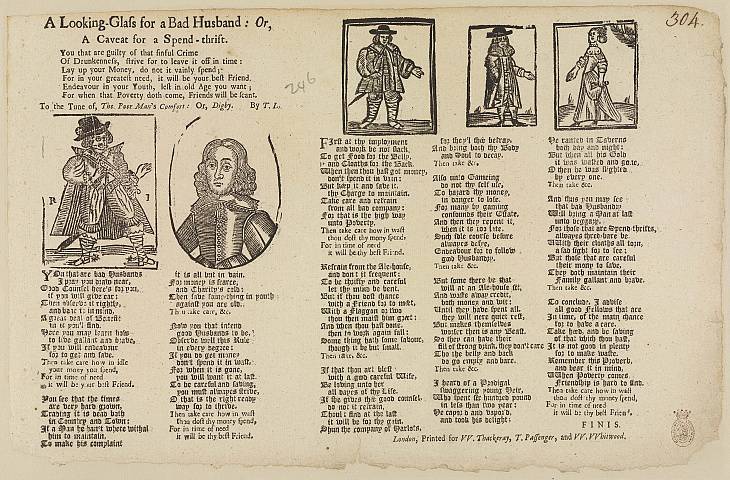 304.
246
A Looking-Glaſs for a Bad Husband: Or,
A Caveat for a Spend-thrift.
You that are guilty of that ſinful Crime
Of Drunkenneſs, ſtrive for to leave it off in time:
Lay up your Money, do not it vainly ſpend;
For in your greateſt need, it will be your beſt Friend.
Endeavour in your Youth, leſt in old Age you want;
For when that Poverty doth come, Friends will be ſcant.
To the Tune of, The Poor Man's Comfort: Or, Digby. By T. L.
R I
YOu that are bad Husbands
I pray you draw near,
Good Counſel here's for you,
if you will give ear:
Then obſerve it rightly,
and bear it in mind,
A great deal of Beneſit
in it you'l find.
Here you may learn how
to live gallant and brave,
If you will endeavour
for to get and ſave.
Then take care how in idle
your money you ſpend,
For in time of need
it will be your beſt Friend.
You ſee that the times
are very hard grown,
Trading it is dead both
in Country and Town:
If a Man he han't wherewithal
him to maintain,
To make his complaint
it is all but in vain.
For money is ſcarce,
and Charity's cold:
Then ſave ſomething in youth
againſt you are old.
Then take care, &c.
Now you that intend
good Husbands to be,
Obſerve well this Rule
in every degree:
If you do get money
don't ſpend it in waſt,
For when it is gone,
you will want it at laſt.
To be careful and ſaving,
you muſt always ſtrive,
O that is the right ready
way for to thrive.
Then take care how in waſt
thou doſt thy money ſpend,
For in time of need
it will be thy beſt Friend.
FIrſt at thy imployment
and work be not ſlack,
To get Food for the Belly,
and Cloaths for the Back.
When then thou haſt got money,
don't ſpend it in vain:
But keep it and ſave it,
thy Charge to maintain.
Take care and refrain
from all bad company:
For that is the high way
unto Poverty.
Then take care how in waſt
thou doſt thy money ſpend
For in time of need
it will be thy beſt Friend.
Refrain from the Ale-houſe,
and don't it frequent:
To be thrifty and careful
let thy mind be bent.
But if thou doſt chance
with a Friend to to meet,
With a Flaggon or two
thou then maiſt him greet:
And when thou haſt done,
then to work again fall:
Some thing hath ſome ſavour,
though it be but ſmall.
Then take, &c.
If that thou art bleſt
with a good careful Wife,
Be loving unto her
all dayes of thy Life.
If ſhe gives thee good counſel,
do not it refrain,
Thou'l find at the laſt
it will be for thy gain.
Shun the company of Harlots,
for they'l thee betray,
And bring both thy Body
and Soul to decay.
Then take &c.
Alſo unto Gameing
do not thy ſelf uſe,
To hazard thy money,
in danger to loſe.
For many by gaming
conſounds their Eſtate,
And then they repent it,
when it is too late.
Such idle courſe before
always defie,
Endeavour for to follow
good Husbandry.
Then take, &c.
But ſome there be that
will at an Ale-houſe ſit,
And waſte away credit,
both money and wit:
Until they have ſpent all,
they will nere quiet reſt,
But makes themſelves
worſer then is any Beaſt.
So they can have their
fill of ſtrong drink, they don't care
Tho the belly and back
do go empty and bare.
Then take, &c.
I heard of a Prodigal
ſwaggering young Heir,
Who ſpent ſix hundred pound
in leſs than two year:
He caper'd and vapor'd,
and took his delight:
He ranted in Taverns
both day and night:
But when all his Gold
it was waſted and gone,
O then he was ſlighted
by every one.
Then take &c.
And thus you may ſee
that bad Husbandry
Will bring a Man at laſt
unto beggary.
For thoſe that are Spend-thrifts,
always thred-bare be,
With their cloaths all torn,
a ſad ſight for to ſee:
But thoſe that are careful
their mony to ſave,
They doth maintain their
Family gallant and brave.
Then take, &c.
To conclude, I adviſe
all good Fellows that are
In time, of the main chance
for to have a care.
Take heed, and be ſaving
of that which thou haſt,
It is not good in plenty
for to make waſte.
Remember this Proverb,
and bear it in mind,
When Poverty comes,
Friendſhip is hard to find.
Then take care how in waſt
thou doſt thy money ſpend,
For in time of need
it will be thy beſt Friend.
FINIS.
London, Printed for W. Thackeray, T. Paſſenger, and W. Whitwood.